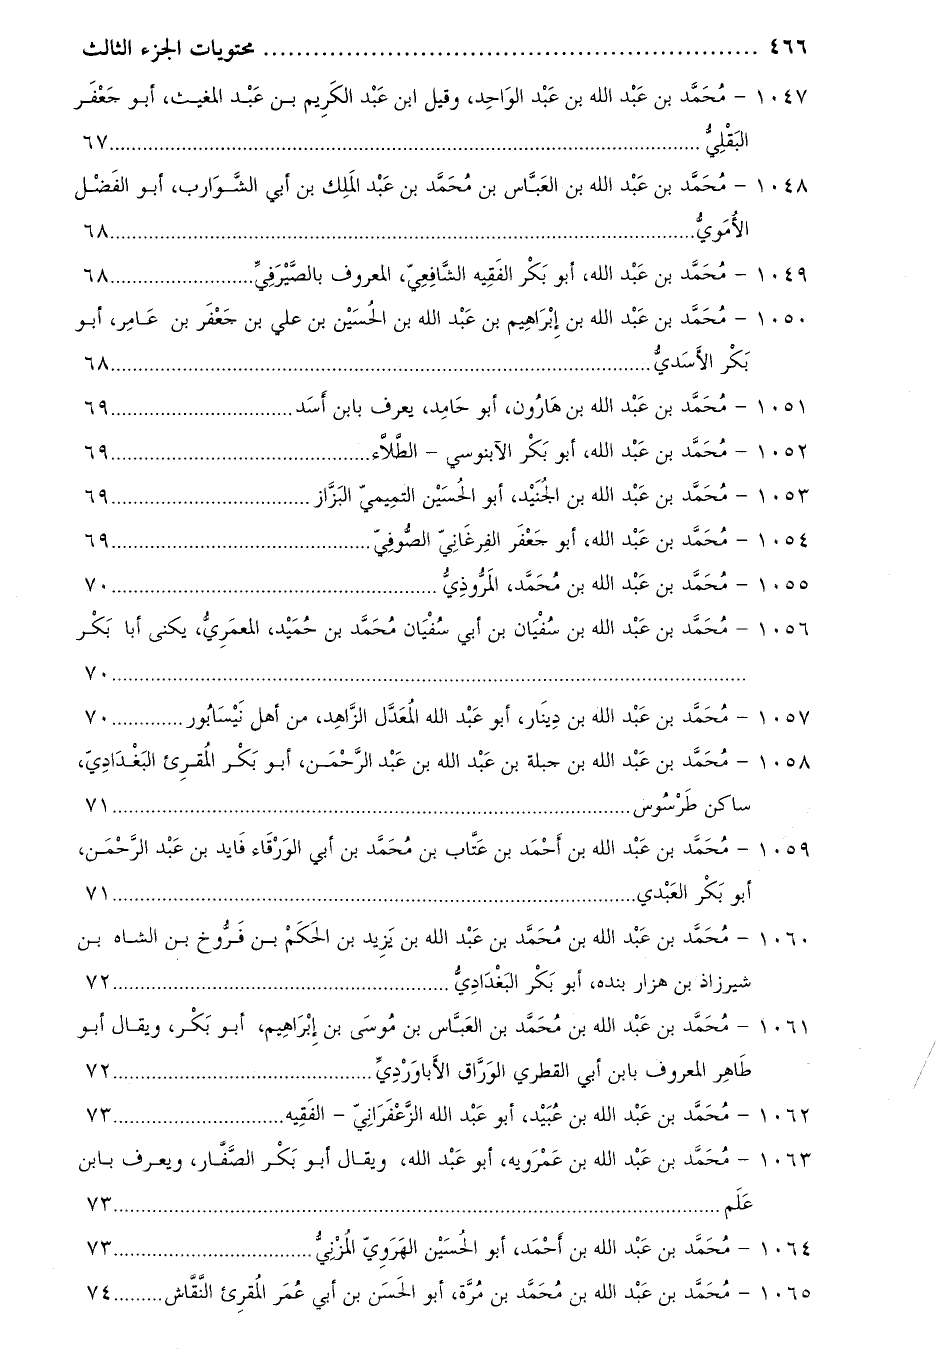 ٤٦٦ ........................................................ محتويات الجزء الثالث
١٠٤٧ – مُحَمَّد بن عَبْد الله بن عَبْد الوَاحِد، وقيل ابن عَبْد الكَرِيم بـن عَبْـد المغيـث، أبـو جَعْفَـر
البَقْلِيُّ ........................................................٦٧
١٠٤٨ – مُحَمَّد بن عَبْد الله بن العَبَّاس بن مُحَمَّد بن عَبْد المَلِك بن أبي الشَّـوَارب، أبـو الفَضْـل
الأُمَويُّ........................................................٦٨
١٠٤٩ – مُحَمَّد بن عَبْد الله، أبو بَكْر الفَقِيه الشَّافِعِيّ، المعروف بالصَّيْرَفِيِّ........................٦٨
١٠٥٠ – مُحَمَّد بن عَبْد الله بن إِبْرَاهِيم بن عَبْد الله بن الحُسَيْن بن علي بن جَعْفَر بن عَـامِر، أبـو
بَكْر الأَسَديُّ........................................................٦٨
١٠٥١ – مُحَمَّد بن عَبْد الله بن هَارُون، أبو حَامِد، يعرف بابن أَسَد................................٦٩
١٠٥٢ – مُحَمَّد بن عَبْد الله، أبو بَكْر الآبنوسي – الطَّلاَّء................................٦٩
١٠٥٣ – مُحَمَّد بن عَبْد الله بن الجُنَيْد، أبو الحُسَيْن التمِيمِيّ البَزَّاز ................................٦٩
١٠٥٤ – مُحَمَّد بن عَبْد الله، أبو جَعْفَر الفِرغَانِيّ الصُّوفِيّ................................٦٩
١٠٥٥ – مُحَمَّد بن عَبْد الله بن مُحَمَّد، المَرُّوذِيُّ ................................٧٠
١٠٥٦ – مُحَمَّد بن عَبْد الله بن سُفْيَان بن أبي سُفْيَان مُحَمَّد بن حُمَيْد، المعمَرِيُّ، يكنى أبا بَكْـر
........................................................٧٠
١٠٥٧ – مُحَمَّد بن عَبْد الله بن دِينَار، أبو عَبْد الله المُعَدَّل الزَّاهِد، من أهل نَيْسَابُور .............٧٠
١٠٥٨ – مُحَمَّد بن عَبْد الله بن حبلة بن عَبْد الله بن عَبْد الرَّحْمَـن، أبـو بَكْـر المُقرِئ البَغْـدَادِيّ،
ساكن طَرْسُوس ........................................................٧١
١٠٥٩ – مُحَمَّد بن عَبْد الله بن أَحْمَد بن عَتَّاب بن مُحَمَّد بن أبي الوَرْقَاء فَايد بن عَبْد الرَّحْمَـن،
أبو بَكْر العَبْدي........................................................٧١
١٠٦٠ – مُحَمَّد بن عَبْد الله بن مُحَمَّد بن عَبْد الله بن يَزِيد بن الحَكَمْ بـن فَـرُّوخ بـن الشاه بـن
شيرزاذ بن هزار بنده، أبو بَكْر البَغْدَادِيُّ ................................٧٢
١٠٦١ – مُحَمَّد بن عَبْد الله بن مُحَمَّد بن العَبَّاس بن مُوسَى بن إِبْرَاهِيم، أبـو بَكْـر، ويقـال أبـو
طَاهِر المعروف بابن أبي القطري الوَرَّاق الأَباوَرْدِيِّ................................٧٢
١٠٦٢ – مُحَمَّد بن عَبْد الله بن عُبَيْد، أبو عَبْد الله الزَّعْفَرَانِيّ – الفَقِيه........................٧٣
١٠٦٣ – مُحَمَّد بن عَبْد الله بن عَمْرَويه، أبو عَبْد الله، ويقـال أبـو بَكْـر الصَّفَّـار، ويعـرف بـابن
عَلَم ........................................................٧٣
١٠٦٤ – مُحَمَّد بن عَبْد الله بن أَحْمَد، أبو الحُسَيْن الهَرَويّ المُزْنِيُّ................................٧٣
١٠٦٥ – مُحَمَّد بن عَبْد الله بن مُحَمَّد بن مُرَّة، أبو الحَسَن بن أبي عُمَر المُقرِئ النَّقَّاش.........٧٤